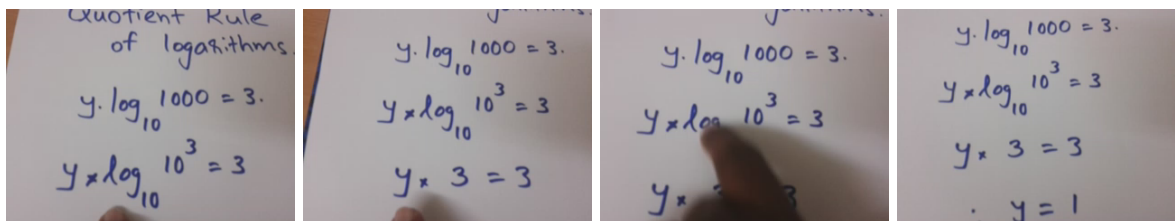 Quotient Rule
of logarithms.
y. log₁₀ 1000 = 3.
y × log₁₀ 10³ = 3
y. log₁₀ 1000 = 3.
y × log₁₀ 10³ = 3
y × 3 = 3
y. log₁₀ 1000 = 3.
y × log 10³ = 3
y ×
y. log₁₀ 1000 = 3.
y × log₁₀ 10³ = 3
y × 3 = 3
. y = 1